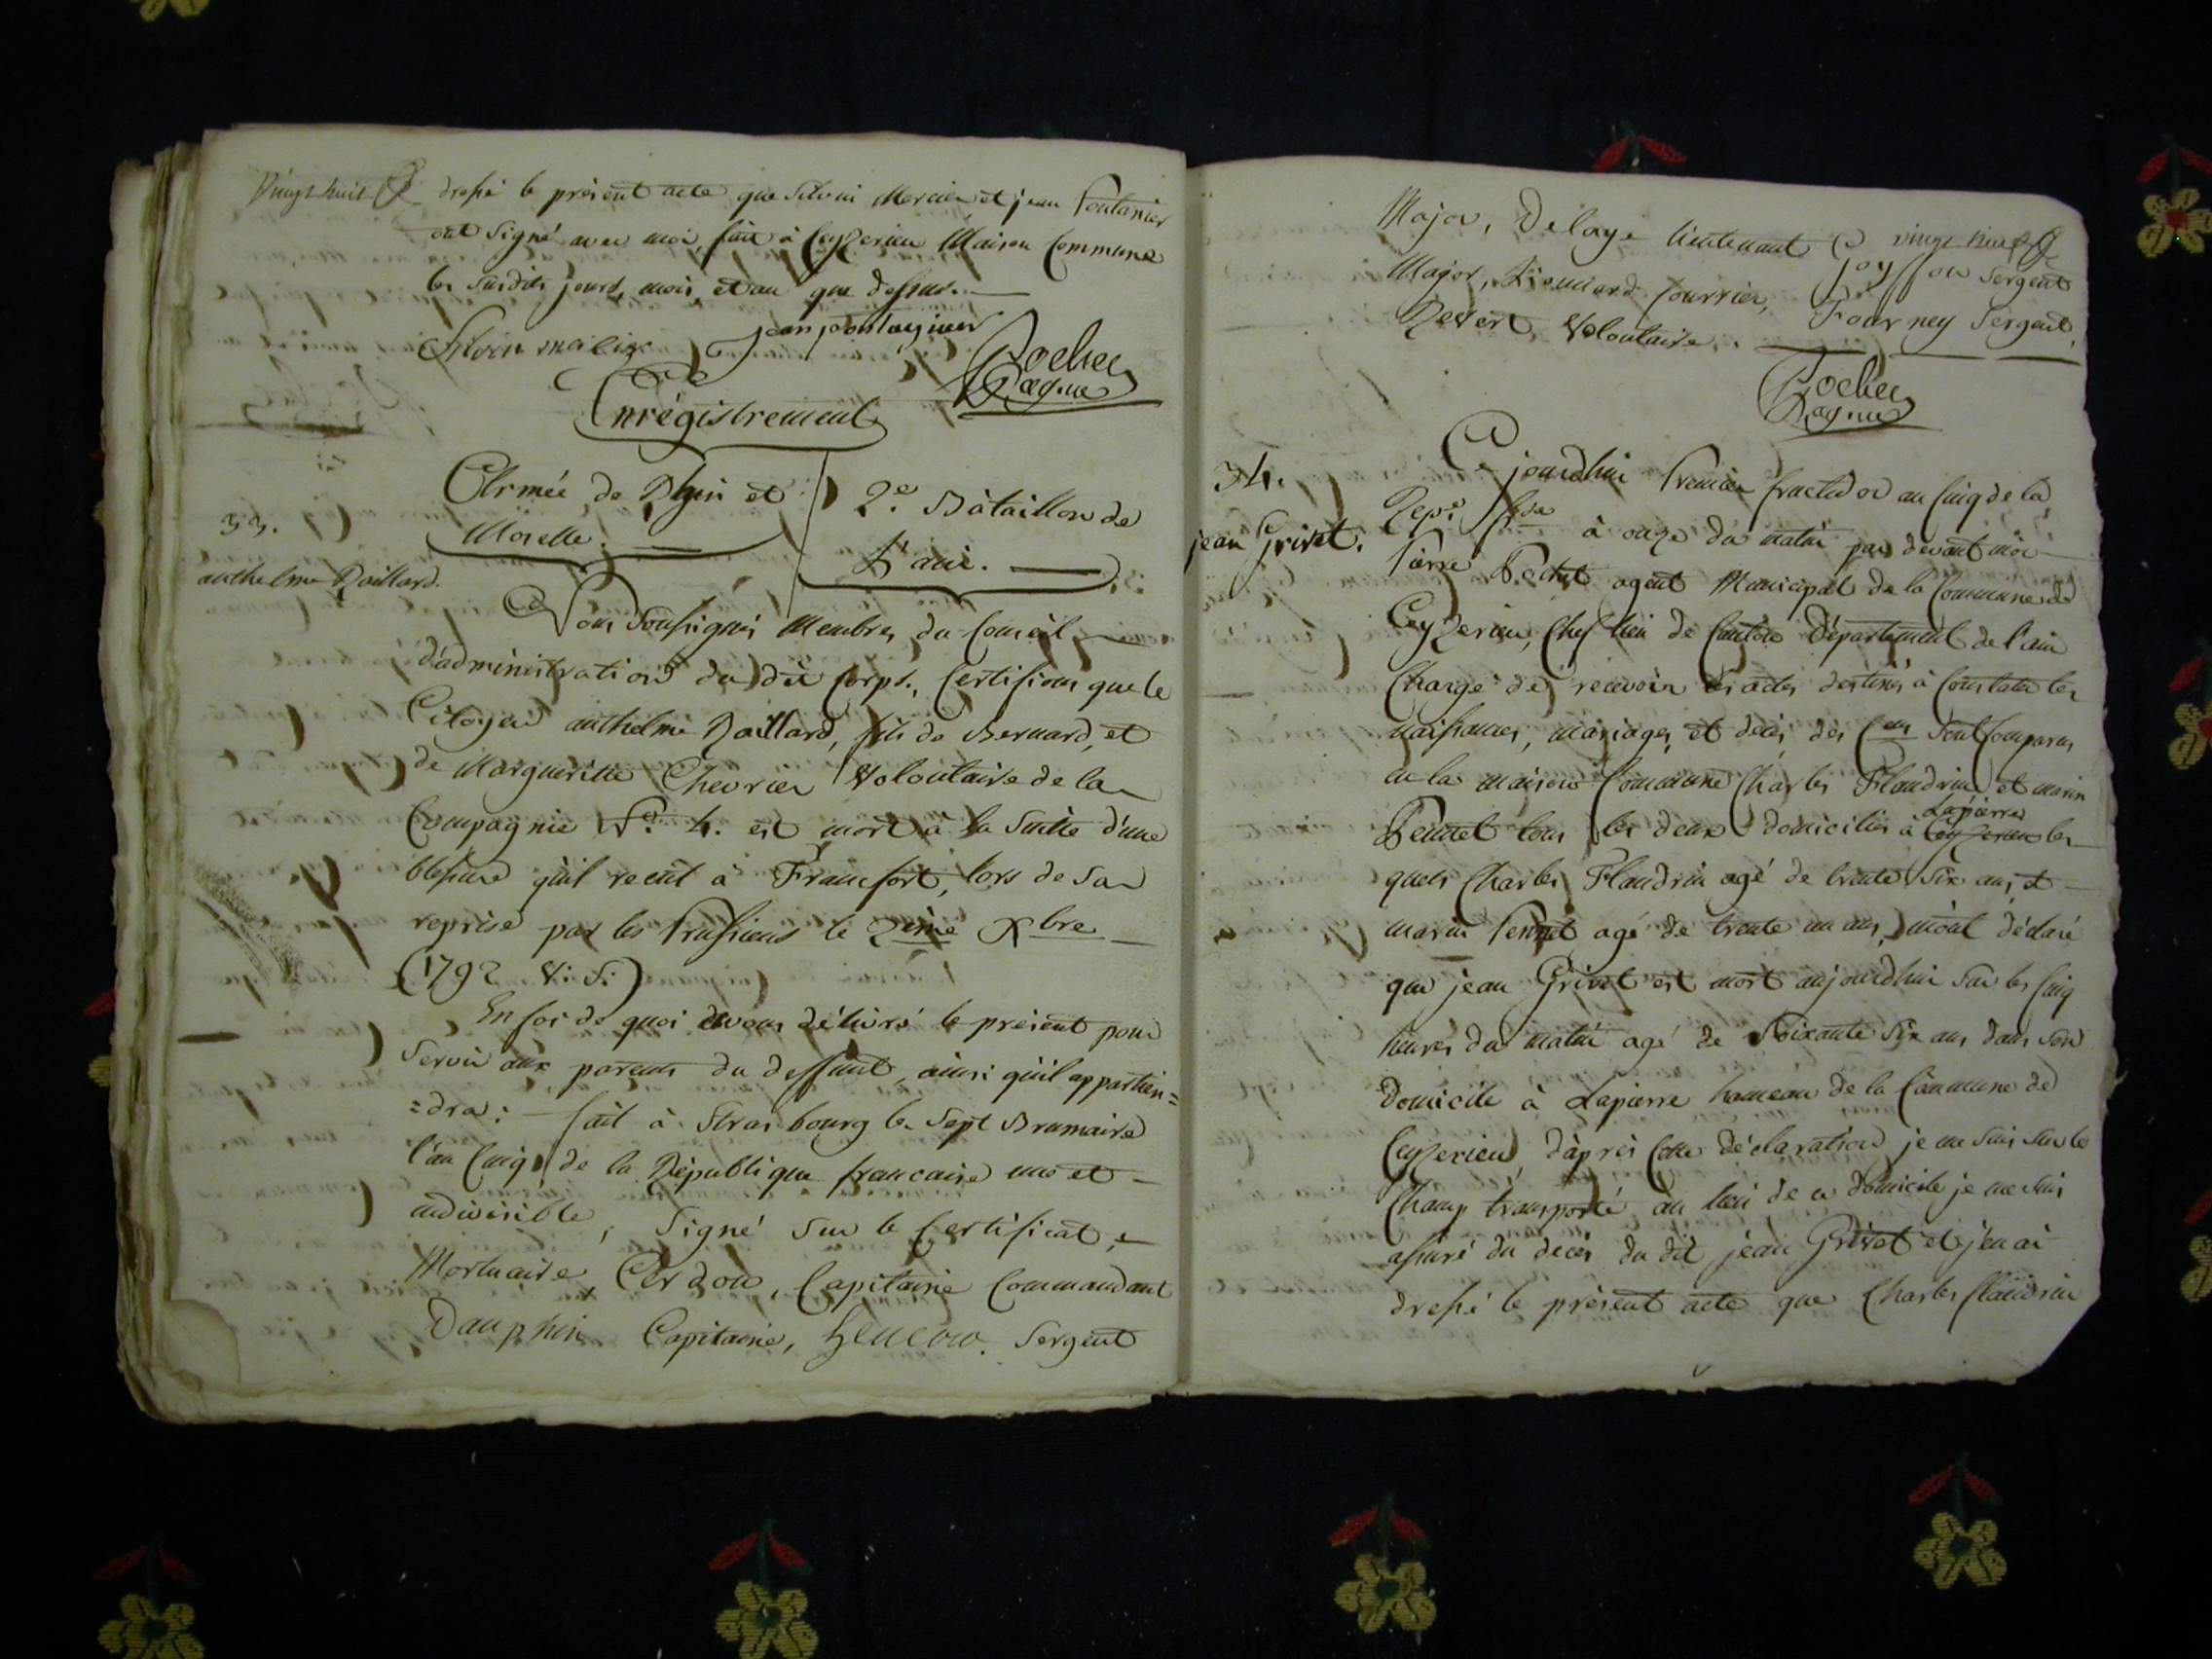 Vingt huit
dressé le présent acte que Silvin Mercier et jean Pontanier
ont Signé avec moi, fait à Ceyzerieu Maison Commune
les Susdits jours, mois, et an que dessus.
jean pontagnier
Rochex
Enrégistrement
33.
anthelme Raillard.
Armée de Rhin et
Moselle.
2e. Bataillon de
L'ain.
Nous Soussignés Membres du Conseil
d'administration du dit Corps, Certifions que le
Citoyen anthelme Raillard, fils de Bernard, et
de Margueritte Chevrier Volontaire de la
Compagnie No. 4. est mort à la Suitte d'une
blessure qu'il recut à Francfort, lors de Sa
reprise par les Prussiens le 2eime Xbre
(1792 V: S:)
En foi de quoi avons délivré le présent pour
Servir aux parents du deffunt, ainsi qu'il appartien=
=dra: fait à Strasbourg le Sept Brumaire
l'an Cinq de la République francaise une et
indivisible, Signé Sur le Certificat
Mortuaire, Cerdon, Capitaine Commandant
Dauphin Capitaine, Sergent
Major, Delaye lieutenant
vingt neuf
Major, fourrier, Sergent
Revert, Volontaire. Fourney Sergent.
Rochex
34.
jean Grivet.
Ce jourdhui Premier fructidor an Cinq de la
Repe fse à onze du matin par devant moi
Pierre Rochex agent Municipal de la Commune de
Ceyzerieu, Chef lieu de Canton Département de l'ain
Chargé de recevoir les actes destinés à Constater les
naissances, mariages, et décès des Cens Sont Comparus
en la maison Commune Charles Flandrin et marin
Pennet tous les deux domiciliés à Ceyzerieu Lapierre les
quels Charles Flandrin agé de trente Six ans, et
marin Pennet agé de trente un ans, m'ont déclaré
que jean Grivet est mort aujourdhui Sur les Cinq
heures du matin agé de Soixante Six ans dans Son
Domicile à Lapierre hameau de la Commune de
Ceyzerieu, d'après Cette déclaration je me Suis Sur le
Champ transporté au lieu de ce domicile je me Suis
assuré du decès du dit jean Grivet et j'en ai
dressé le présent acte que Charles flandrin